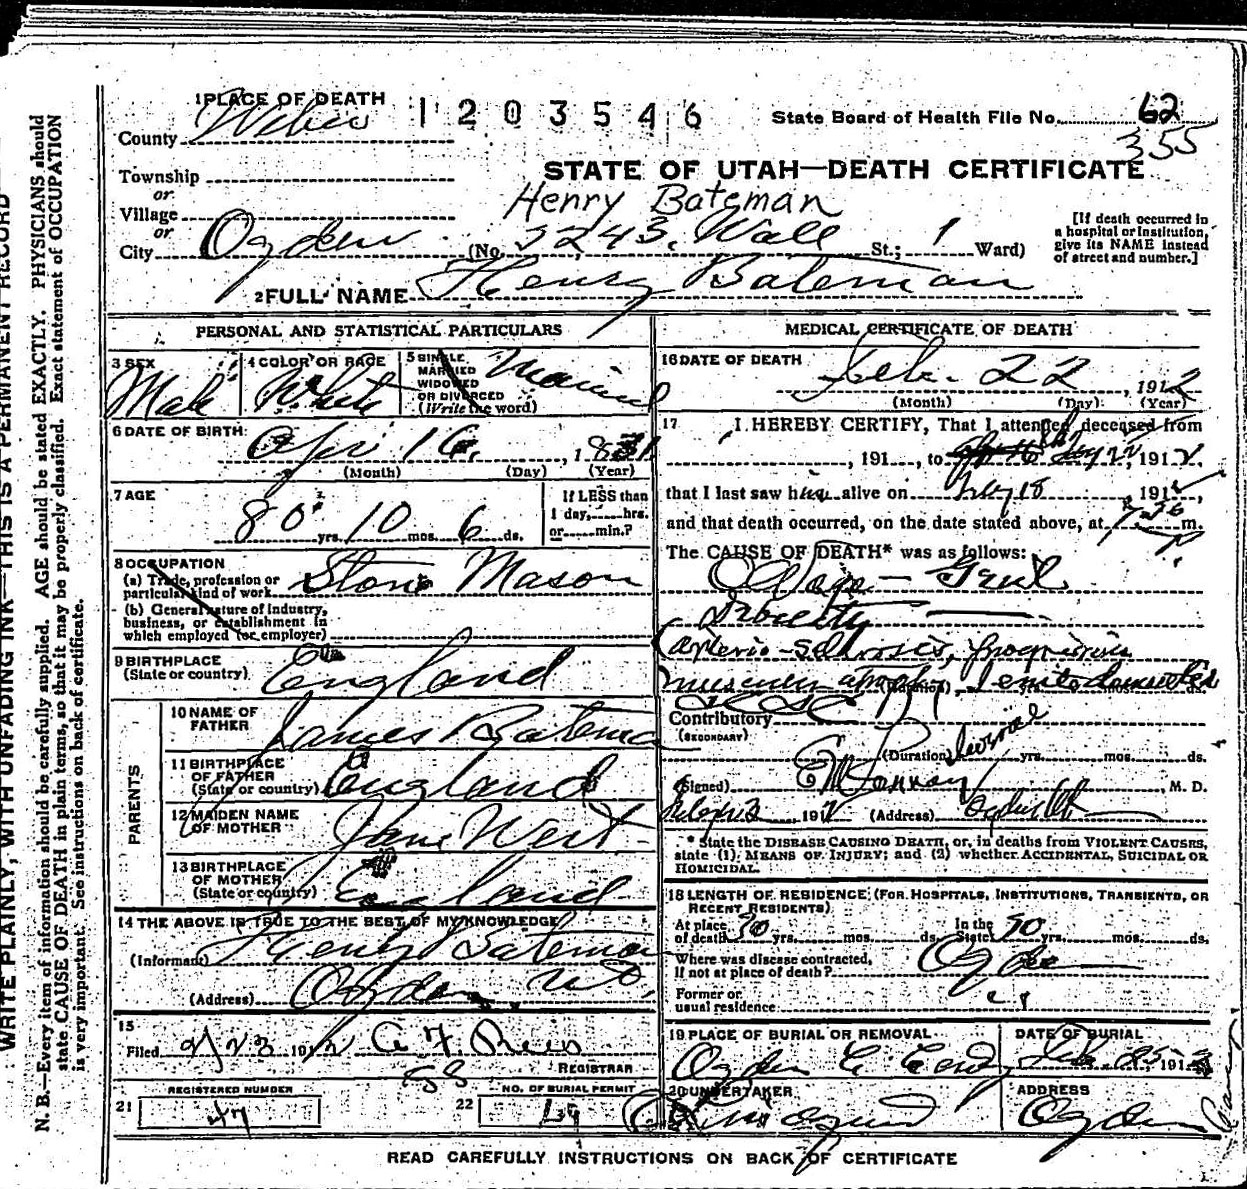 WRITE PLAINLY, WITH UNFADING INK—THIS IS A PERMANENT RECORD
N. B.—Every item of information should be carefully supplied. AGE should be stated EXACTLY. PHYSICIANS should
state CAUSE OF DEATH in plain terms, so that it may be properly classified. Exact statement of OCCUPATION
is very important. See instructions on back of certificate.
1 PLACE OF DEATH
1203546
State Board of Health File No. 62
355
County Weber
STATE OF UTAH—DEATH CERTIFICATE
Township
or
Henry Bateman
Village
or
City Ogden (No. 5243, Wall St.; 1 Ward)
[If death occurred in
a hospital or institution,
give its NAME instead
of street and number.]
2 FULL NAME Henry Bateman
PERSONAL AND STATISTICAL PARTICULARS
3 SEX Male
4 COLOR OR RACE White
5 SINGLE, MARRIED WIDOWED OR DIVORCED (Write the word) Married
6 DATE OF BIRTH Apr 16, 1831
(Month) (Day) (Year)
7 AGE
80 yrs. 10 mos. 6 ds.
If LESS than
1 day, hrs.
or min.?
8 OCCUPATION
(a) Trade, profession or
particular kind of work Stone Mason
(b) General nature of industry,
business, or establishment in
which employed (or employer)
9 BIRTHPLACE
(State or country) England
PARENTS
10 NAME OF
FATHER James Bateman
11 BIRTHPLACE
OF FATHER
(State or country) England
12 MAIDEN NAME
OF MOTHER Jane West
13 BIRTHPLACE
OF MOTHER
(State or country) England
14 THE ABOVE IS TRUE TO THE BEST OF MY KNOWLEDGE
(Informant) Henry Bateman
(Address) Ogden Ut.
15
Filed 2/23 1912
REGISTRAR
58
REGISTERED NUMBER
21 47
NO. OF BURIAL PERMIT
22
MEDICAL CERTIFICATE OF DEATH
16 DATE OF DEATH
Feb. 22, 1912
(Month) (Day) (Year)
17 I HEREBY CERTIFY, That I attended deceased from
, 191 , to 22, 1912,
that I last saw him alive on Feby 18, 1912,
and that death occurred, on the date stated above, at 7:30 P m.
The CAUSE OF DEATH* was as follows:
Old age — Genl
Debility
Arterio-Sclerosis, progressive
muscular atrophy
(Duration) yrs. mos. ds.
Contributory
(SECONDARY)
(Duration) Several yrs. mos. ds.
(Signed) E M Conroy M. D.
1912 (Address) Ogden Ut
* State the DISEASE CAUSING DEATH, or, in deaths from VIOLENT CAUSES,
state (1) MEANS OF INJURY; and (2) whether ACCIDENTAL, SUICIDAL OR
HOMICIDAL.
18 LENGTH OF RESIDENCE (FOR HOSPITALS, INSTITUTIONS, TRANSIENTS, OR
RECENT RESIDENTS)
At place
of death 30 yrs. mos. ds. In the State 50 yrs. mos. ds.
Where was disease contracted,
if not at place of death? Ogden
Former or
usual residence
19 PLACE OF BURIAL OR REMOVAL
Ogden C Cemy
DATE OF BURIAL
Feb. 25, 1912
20 UNDERTAKER
ADDRESS
Ogden
READ CAREFULLY INSTRUCTIONS ON BACK OF CERTIFICATE